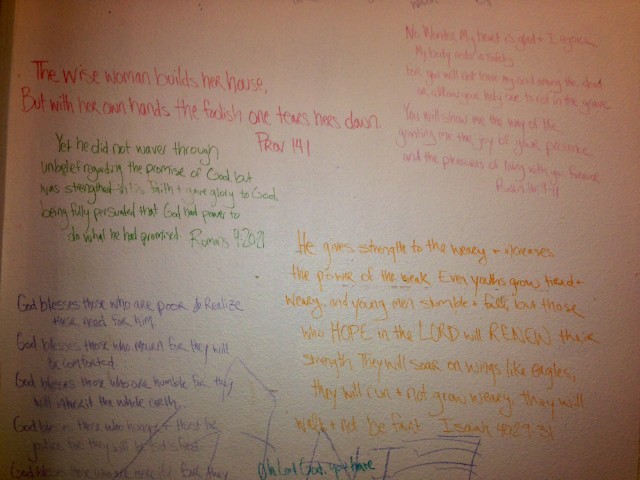 The wise woman builds her house,
But with her own hands the foolish one tears hers down.
Prov 14:1
No Wonder My heart is glad + I rejoice
My body rests in safety
For you will not leave my soul among the dead
or allow your holy one to rot in the grave
You will show me the way of life
granting me the joy of your presence
and the pleasures of living with you forever
Psalm 16:9-11
Yet he did not waver through
unbelief regarding the promise of God, but
was strengthened in his faith + gave glory to God,
being fully persuaded that God had power to
do what he had promised. Romans 4:20-21
He gives strength to the weary + increases
the power of the weak. Even youths grow tired +
weary, and young men stumble + fall, but those
who HOPE in the LORD will RENEW their
strength. They will soar on wings like eagles,
they will run + not grow weary, they will
walk + not be faint Isaiah 40:29-31
God blesses those who are poor & Realize
their need for him
God blesses those who mourn for they will
be comforted.
God blesses those who are humble for they
will inherit the whole earth.
God blesses those who hunger + thirst for
justice for they will be satisfied.
God blesses those who are merciful for they
Oh Lord God, you have